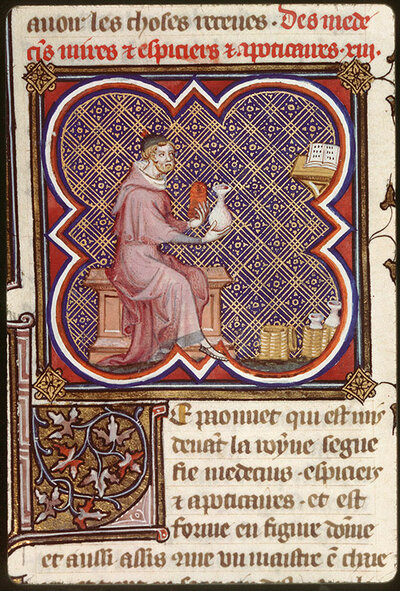 auoir les choses retenues. Des mede
cis mires ⁊ espiciers ⁊ apoticaires. xiii.
Le paonnet qui est mis
deuāt la royne segne
fie medecins. espiciers
⁊ apoticaires. et est
forme en figure dōme
et aussi assis ꝯme vn maistre ē chaie